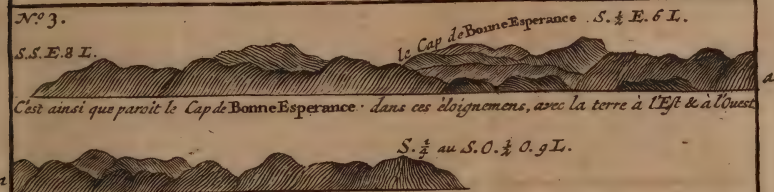 N.º 3.
le Cap de Bonne Esperance . S. ½ E. 6 L.
S.S.E. 8 L.
a
C'est ainsi que paroit le Cap de Bonne Esperance · dans ces éloignemens, avec la terre à l'Est & à l'Ouest
S. ¼ au S.O. ½ O. 9 L.